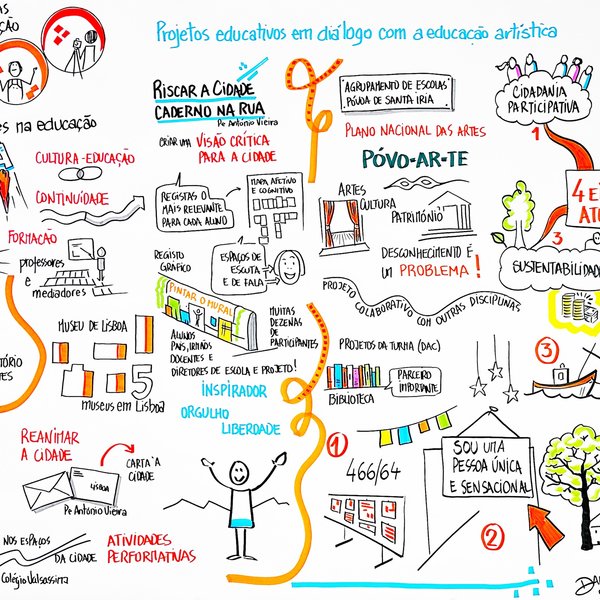 Projetos educativos em diálogo com a educação artística
na educação
CULTURA-EDUCAÇÃO
CONTINUÍDADE
FORMAÇÃO
professores
e
mediadores
MUSEU DE LISBOA
5
museus em Lisboa
REANIMAR
A CIDADE
CARTA À
CIDADE
LISBOA
Pe António Vieira
NOS ESPAÇOS
DA CIDADE
ATIVIDADES
PERFORMATIVAS
Colégio Valsassina
RISCAR A CIDADE
CADERNO NA RUA
Pe António Vieira
CRIAR UM VISÃO CRÍTICA
PARA A CIDADE
REGISTAS O
MAIS RELEVANTE
PARA CADA ALUNO
MAPA AFETIVO
E COGNITIVO
REGISTO
GRÁFICO
ESPAÇOS DE
ESCUTA
E DE FALA
PINTAR O MURAL
ALUNOS
PAIS, IRMÃOS
DOCENTES E
DIRETORES DE ESCOLA E PROJETO!
MUITAS
DEZENAS
DE
PARTICIPANTES
INSPIRADOR
ORGULHO
LIBERDADE
AGRUPAMENTO DE ESCOLAS
PÓVOA DE SANTA IRIA
PLANO NACIONAL DAS ARTES
PÓVO-AR-TE
ARTES
CULTURA
PATRIMÓNIO
DESCONHECIMENTO É
UM PROBLEMA!
PROJETO COLABORATIVO COM OUTRAS DISCIPLINAS
PROJETOS DA TURMA (DAC)
BIBLIOTECA
PARCEIRO
IMPORTANTE
1
466/64
SOU UMA
PESSOA ÚNICA
E SENSACIONAL
2
CIDADANIA
PARTICIPATIVA
1
4 E
3
SUSTENTABILIDADE
3